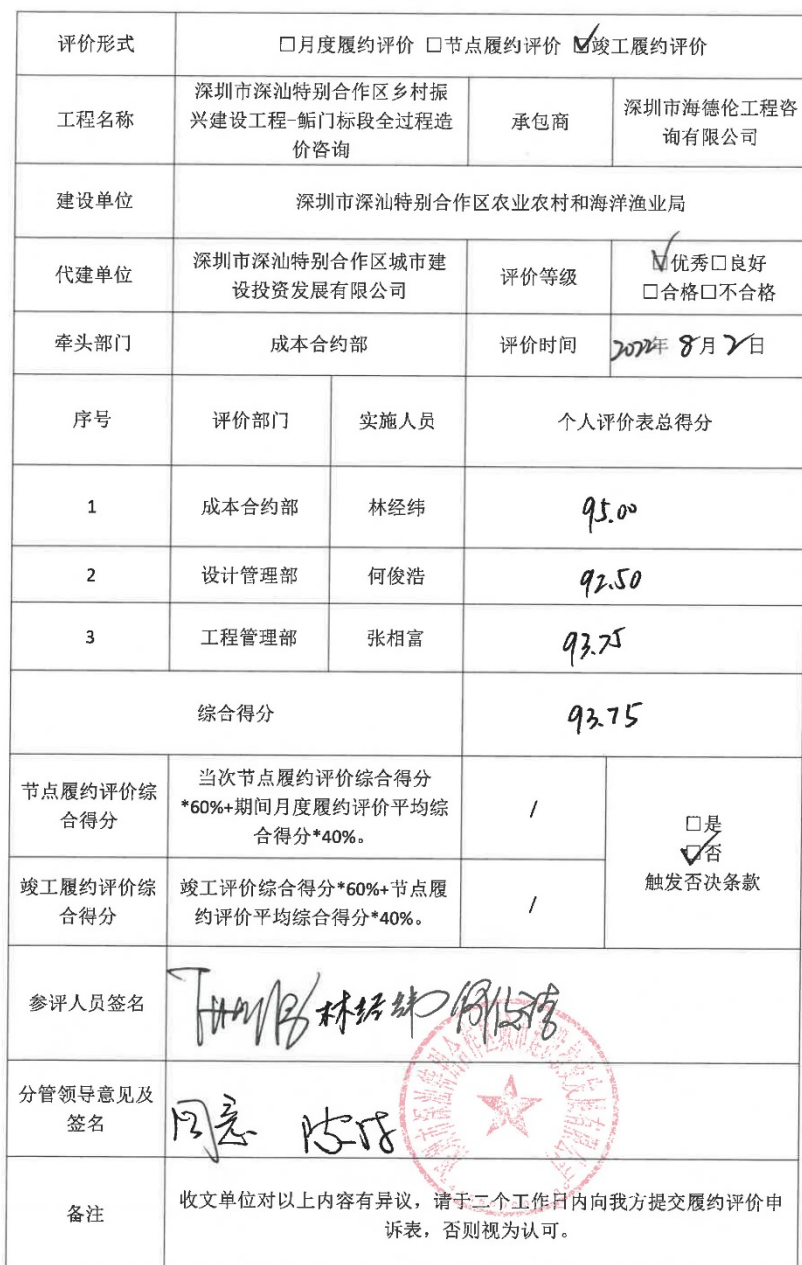 评价形式
□月度履约评价 □节点履约评价 ☑竣工履约评价
工程名称
深圳市深汕特别合作区乡村振
兴建设工程-鲘门标段全过程造
价咨询
承包商
深圳市海德伦工程咨
询有限公司
建设单位
深圳市深汕特别合作区农业农村和海洋渔业局
代建单位
深圳市深汕特别合作区城市建
设投资发展有限公司
评价等级
☑优秀□良好
□合格□不合格
牵头部门
成本合约部
评价时间
2022年 8月 2日
序号
评价部门
实施人员
个人评价表总得分
1
成本合约部
林经纬
95.00
2
设计管理部
何俊浩
92.50
3
工程管理部
张相富
93.75
综合得分
93.75
节点履约评价综
合得分
当次节点履约评价综合得分
*60%+期间月度履约评价平均综
合得分*40%。
/
□是
☑否
触发否决条款
竣工履约评价综
合得分
竣工评价综合得分*60%+节点履
约评价平均综合得分*40%。
/
参评人员签名
林经纬 何俊浩
分管领导意见及
签名
同意
深圳市深汕特别合作区城市建设投资发展有限公司
备注
收文单位对以上内容有异议，请于二个工作日内向我方提交履约评价申
诉表，否则视为认可。